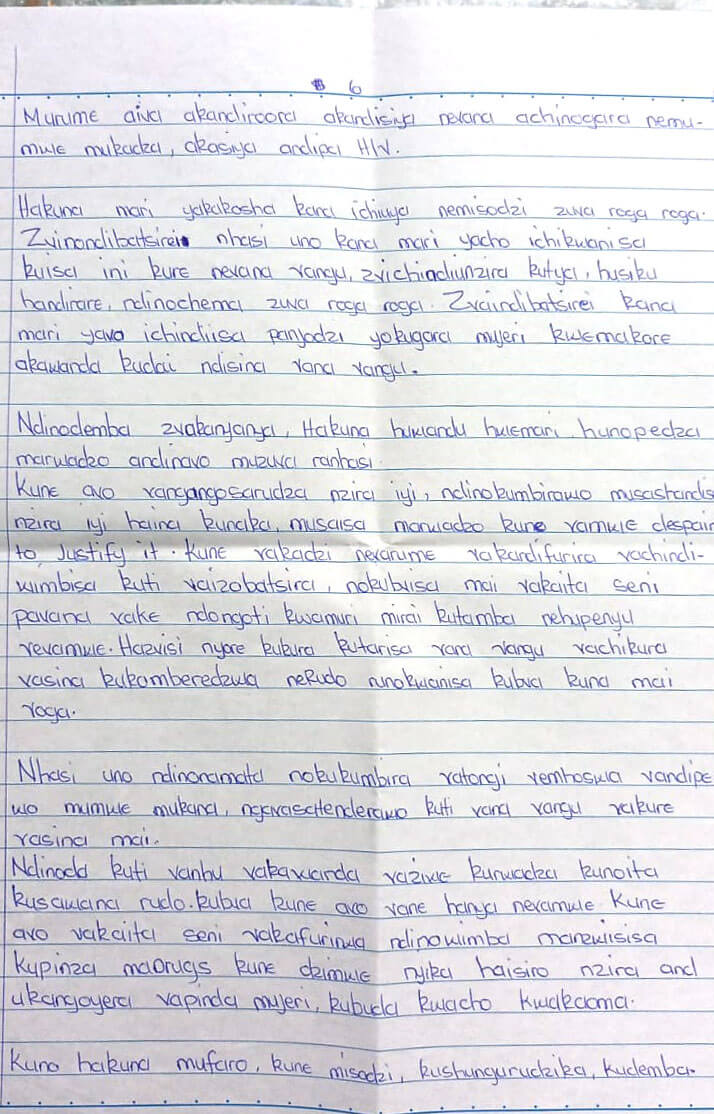 6
Murume aiva akandiroora akandisiya nevana achinogara nemu-
mwe mukadzi, akasiya andipa HIV.
Hakuna mari yakakosha kana ichiuya nemisodzi zuva roga roga.
Zvinondibatsirei nhasi uno kana mari yacho ichikwanisa
kuisa ini kure nevana vangu, zvichindiunzira kutya, husiku
handirare, ndinochema zuva roga roga. Zvaindibatsirei kana
mari yavo ichindiisa panjodzi yokugara mujeri kwemakore
akawanda kudai ndisina vana vangu.
Ndinodemba zvakanyanya, Hakuna huwandu hwemari hunopedza
marwadzo andinavo muzuva ranhasi.
Kune avo vangangosarudza nzira iyi, ndinokumbirawo musastands
nzira iyi haina kunaka, musaisa marwadzo kune vamwe despair
to justify it. Kune vakadzi nevarume vakandifurira vachindi-
vimbisa kuti vaizobatsira, nokubvisa mai vakaita seni
pavana vake ndongoti kwamuri mirai kutamba nehupenyu
vevamwe. Hazvisi nyore kubura kutarisa vana vangu vachikura
vasina kukomberedzwa neRudo runokwanisa kubva kuna mai
voga.
Nhasi uno ndinonamata nokukumbira vatongi vemhoswa vandipe
wo mumwe mukana, ngavasatenderawo kuti vana vangu vakure
vasina mai.
Ndinoda kuti vanhu vakawanda vazive kurwadza kunoita
kusawana rudo. kubva kune avo vane hanya nevamwe. Kune
avo vakaita seni vakafurirwa ndinovimba manzwisisa
Kupinza maDrugs kune dzimwe nyika haisiro nzira and
ukangoyera vapinda mujeri, kubuda kwacho kwakaoma.
Kuno hakuna mufaro, kune misodzi, kushungurudzika, kudemba.